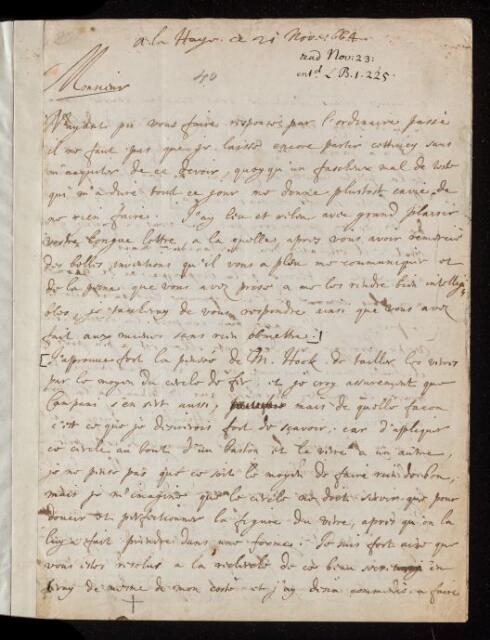 A la Haye. ce 21 Nov. 1664.
read Nov: 23:
ent'd L B. 1. 225.
Monsieur
40
N'ayant pû vous faire responce par l'ordinaire passé
il ne faut pas que je laisse encore partir cettuicy sans
m'acquiter de ce devoir, quoyqu'un fascheux mal de teste
qui m'a duré tout ce jour me donne plustost envie de
ne rien faire. J'ay leu et releu avec grand plaisir
vostre longue lettre, a la quelle, apres vous avoir remercié
des belles inventions qu'il vous a plu me communiquer et
de la peine que vous avez prise a me les rendre bien intelligi
bles, je tascheray de vous respondre ainsi que vous avez
fait aux miennes sans rien obmettre.]
[J'approuve fort la pensée de Mr. Hook de tailler les verres
par le moyen du cercle de fer, et je croy assurement que
Campani s'en sert aussi, mais de quelle facon
c'est ce que je desirerois fort de scavoir: car d'appliquer
ce cercle au bout d'un baston et le verre a un autre,
je ne pense pas que ce soit le moyen de faire rien de bon,
mais je m'imagine que le cercle ne doit servir que pour
doucir et perfectionner la figure du verre, apres qu'on la
luy a fait prendre dans une forme. Je suis fort aise que
vous estes resolus a la recherche de ce beau en
feray de mesme de mon costé et j'ay desia commencé a faire